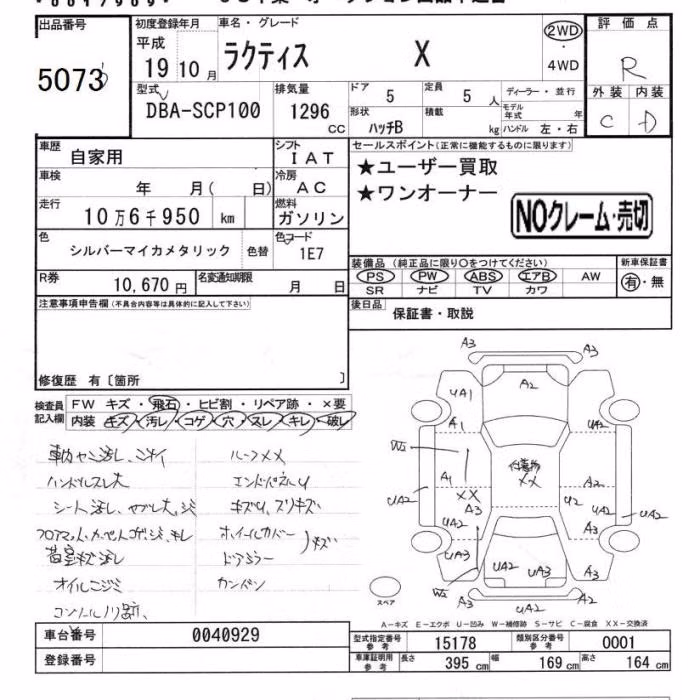 出品番号
5073
初度登録年月
平成
19 10 月
車名・グレード
ラクティス X
2WD
・
4WD
評価点
R
外装 内装
C D
型式
DBA-SCP100
排気量
1296
CC
ドア 5
定員 5 人
形状 ハッチB
積載 kg
ディーラー・並行
モデル年式 年
ハンドル 左・右
車歴 自家用
シフト IAT
車検 年 月( 日)
冷房 AC
走行 10万6千950 km
燃料 ガソリン
色 シルバーマイカメタリック 色替
色コード 1E7
R券 10,670 円
名変通知期限 月 日
セールスポイント(正常に機能するものに限ります)
★ユーザー買取
★ワンオーナー
NOクレーム・売切
装備品(純正品に限り○をつけてください)
PS PW ABS エアB AW
SR ナビ TV カワ
新車保証書
有・無
後日品
保証書・取説
注意事項申告欄(不具合内容等は具体的に記入して下さい)
修復歴 有〔箇所 〕
検査員記入欄
FW キズ・飛石・ヒビ割・リペア跡・×要
内装 キズ・汚レ・コゲ・穴・スレ・キレ・破レ
ハンドルスレ大
オイルニジミ
ルーフXX
エンドパネルU
キズU、スリキズ
ホイールカバー
ドアミラー
キズ
カンバン
A3
A3
UA1
A2
A1
W2
A1
XX
A3
XX
A2
UA2
UA2
U2
UA2
UA2
A3
UA3
UA2
UA3
A3
W2
A3
UA2
スペア
A－キズ E－エクボ U－凹み W－補修跡 S－サビ C－腐食 XX－交換済
車台番号 0040929
登録番号
型式指定番号 参考 15178
類別区分番号 参考 0001
車庫証明用 参考
長さ 395 cm
幅 169 cm
高さ 164 cm